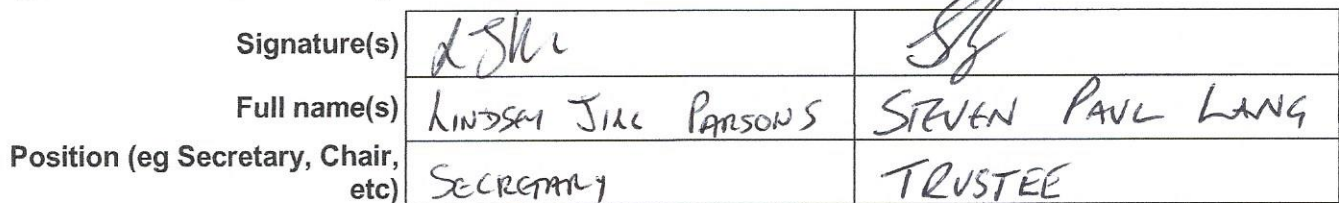 Signature(s)
Full name(s) LINDSEY JILL PARSONS STEVEN PAUL LANG
Position (eg Secretary, Chair,
etc) SECRETARY TRUSTEE